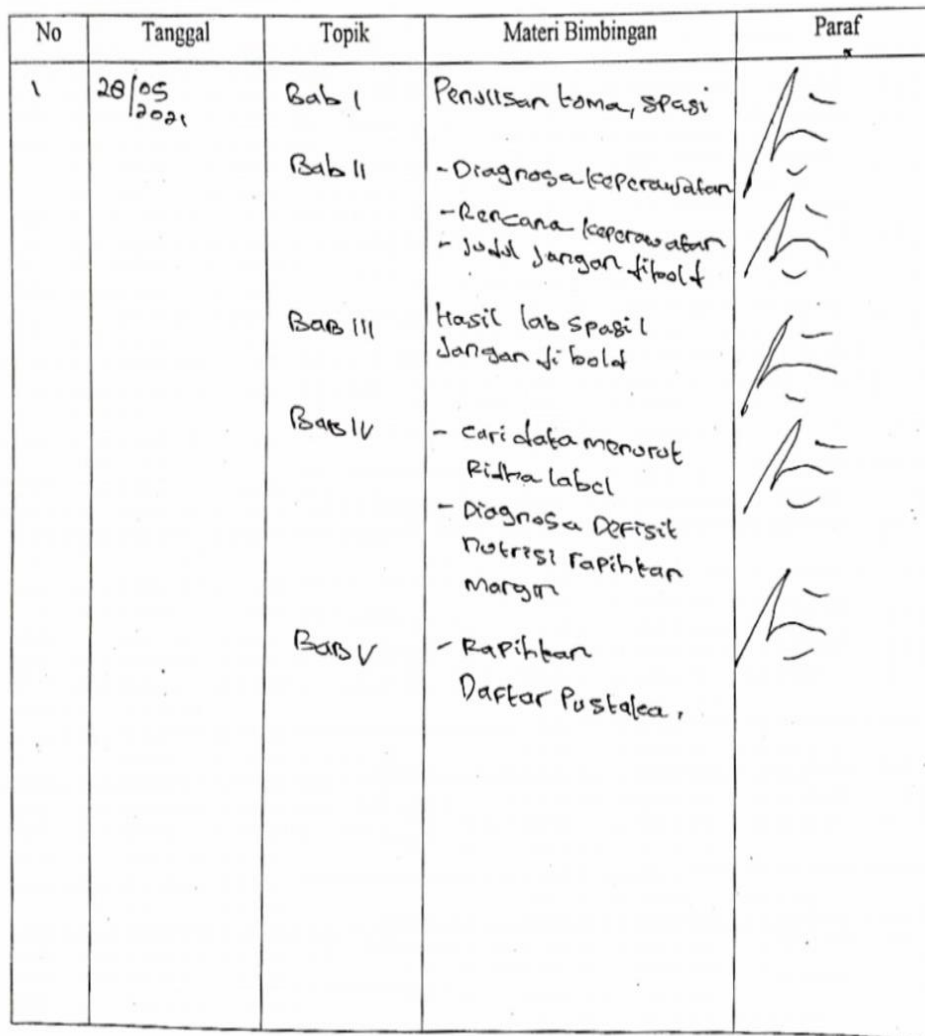 No Tanggal Topik Materi Bimbingan Paraf
1 28/05 Bab I Penulisan koma, spasi
2021
Bab II - Diagnosa keperawatan
- Rencana keperawatan
- Judul jangan dibold
Bab III Hasil lab spasi 1
Jangan di bold
Bab IV - cari data menurut
Ridha label
- Diagnosa Defisit
nutrisi rapihkan
margin
Bab V - Rapihkan
Daftar Pustaka.